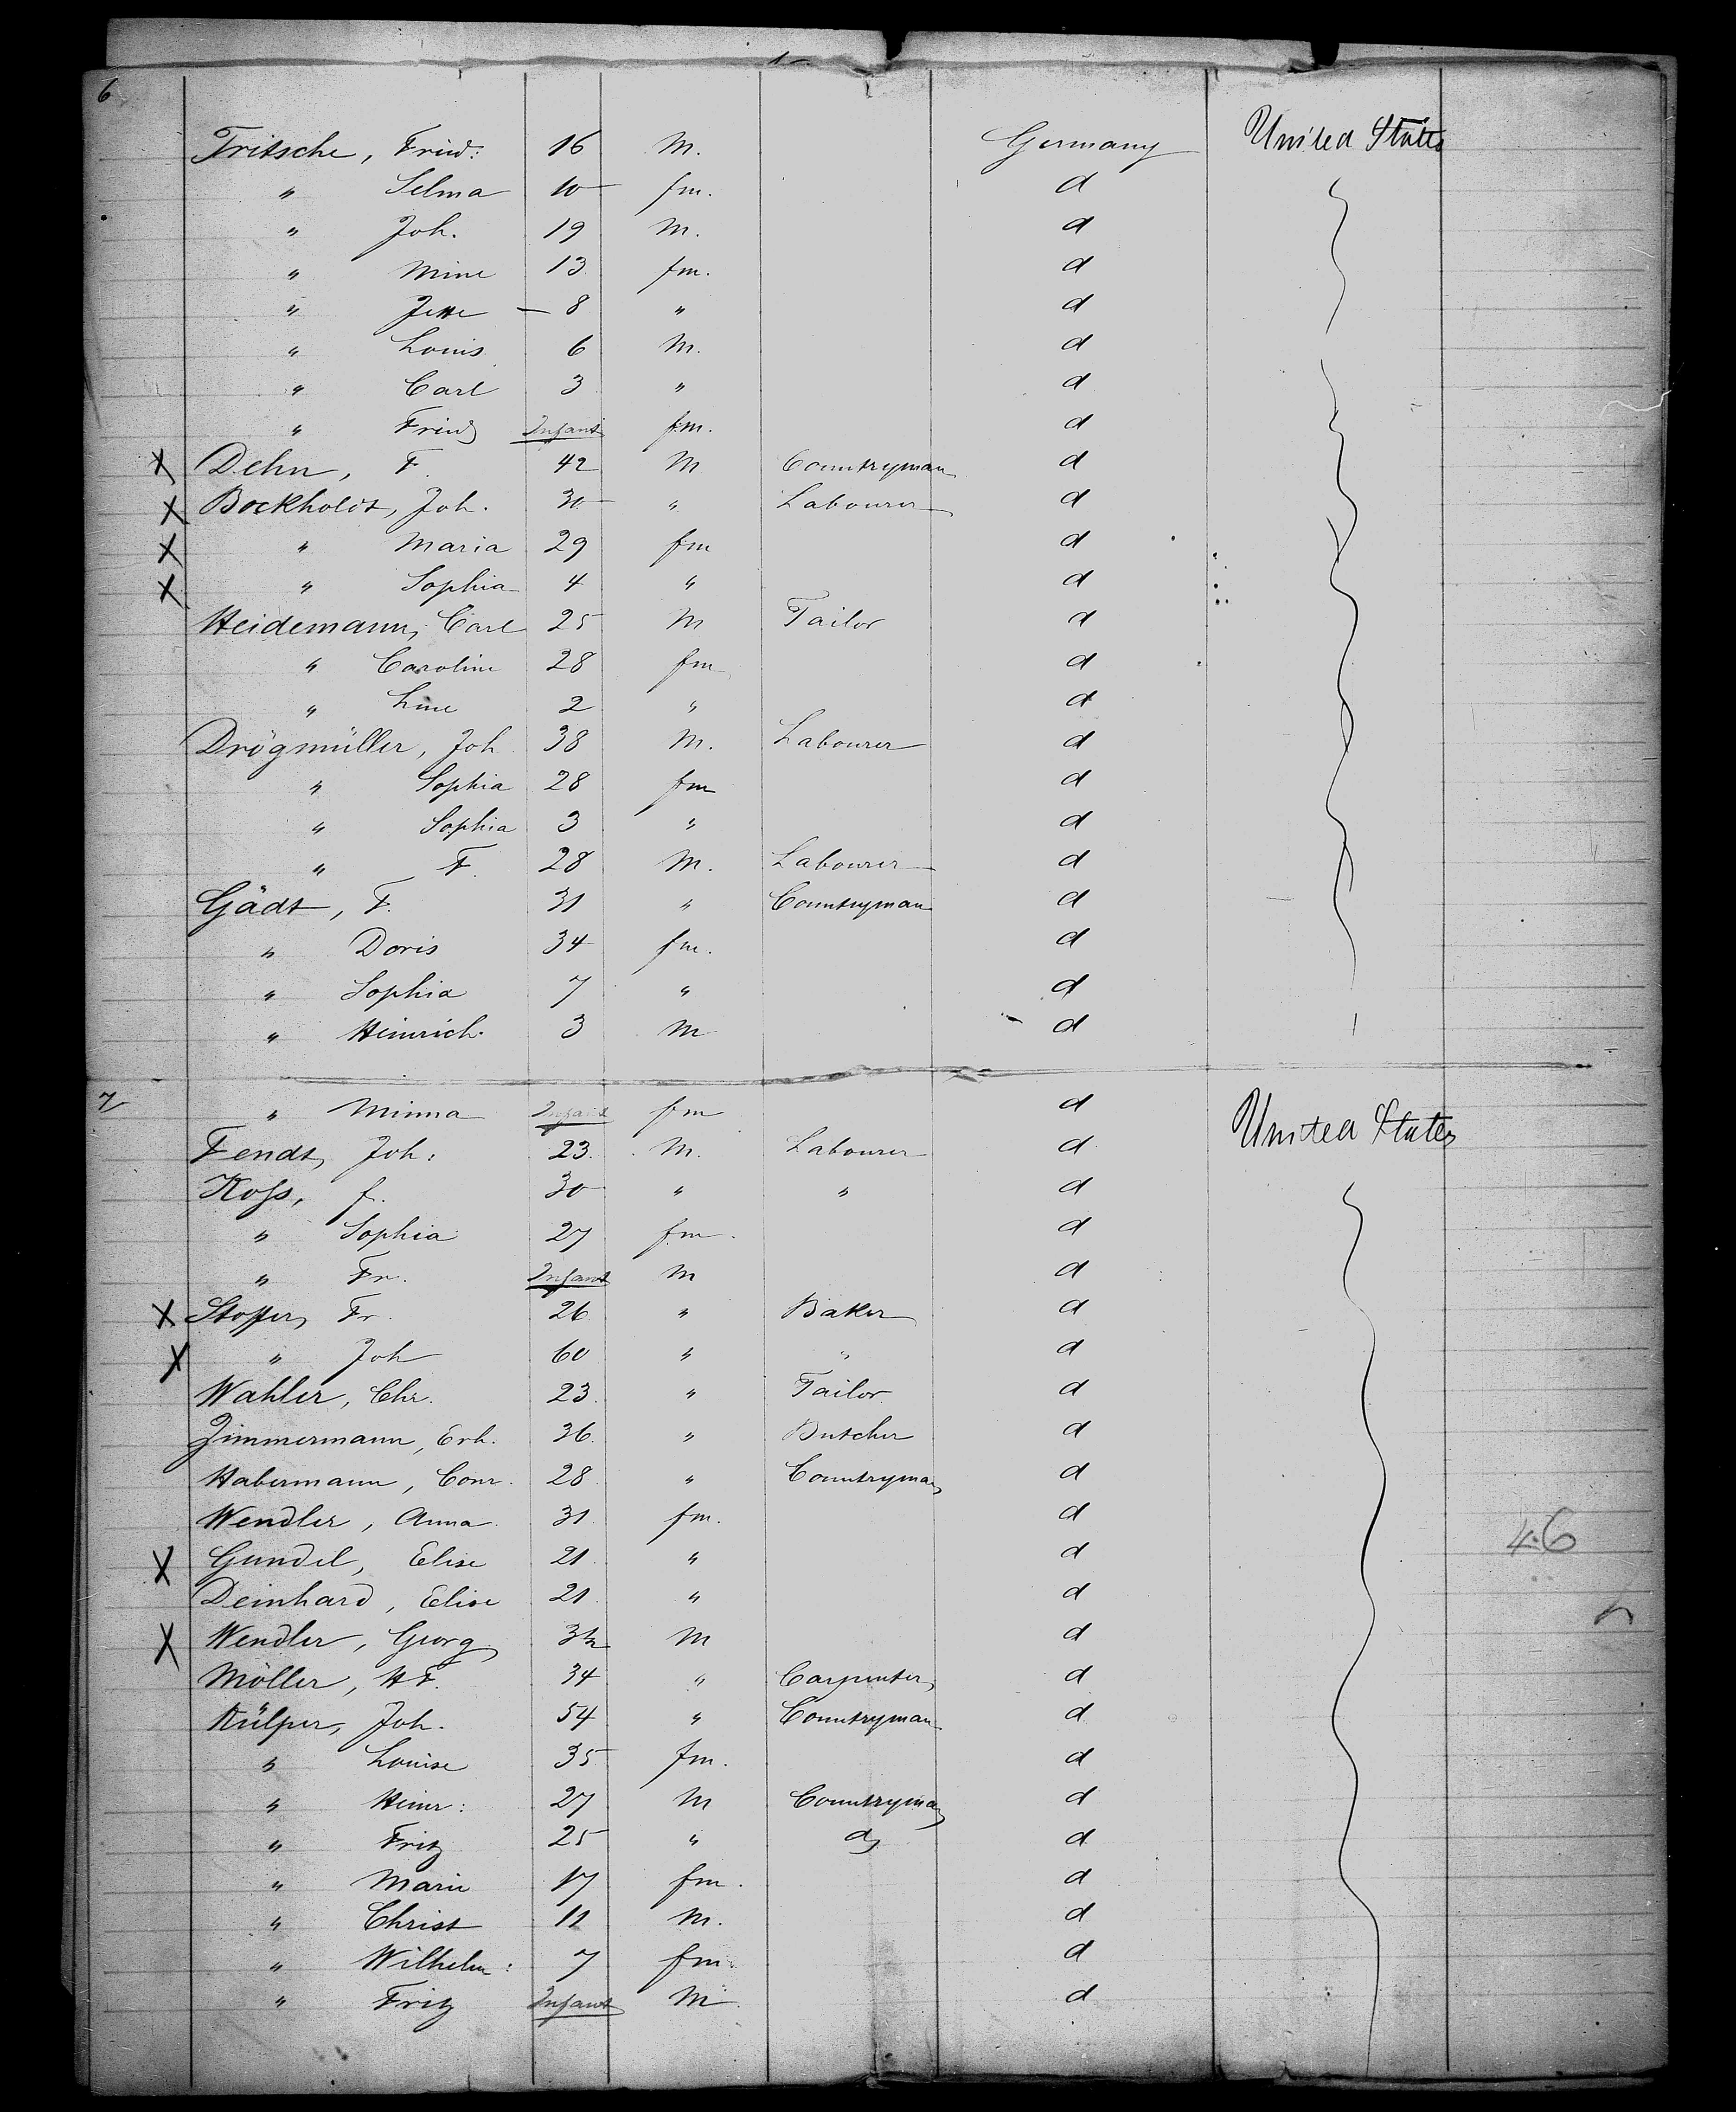 6
Fritsche, Fried: 16 M. Germany United States
" Selma 10 fm. d
" Joh. 19 M. d
" Mine 13 fm. d
" Jette — 8 " d
" Louis 6 M. d
" Carl 3 " d
" Fried Infant fm. d
X Dehn, F. 42 M Countryman d
X Bockholdt, Joh. 30 " Labourer d
X " Maria 29 fm d
X " Sophia 4 " d
Heidemann, Carl 25 M Tailor d
" Caroline 28 fm d
" Line 2 " d
Drögmüller, Joh 38 M. Labourer d
" Sophia 28 fm d
" Sophia 3 " d
" F. 28 M. Labourer d
Gädt, F. 31 " Countryman d
" Doris 34 fm. d
" Sophia 7 " d
" Heinrich. 3 M d
7
" Minna Infant fm d United States
Fendt, Joh: 23. M. Labourer d
Koss, f. 30 " " d
" Sophia 27 fm. d
" Fr. Infant M d
X Stoffer, Fr. 26 " Baker d
X " Joh 60 " " d
Wahler, Chr. 23. " Tailor d
Zimmermann, Erh. 36. " Butcher d
Habermann, Conr. 28 " Countryman d
Wendler, Anna 31 fm. d
X Gundel, Elise 21 " d
46
Deinhard, Elise 21 " d
X Wendler, Georg M d
Möller, H F. 34 " Carpenter d
Külper, Joh. 54 " Countryman d
" Louise 35 fm. d
" Heinr: 27 M Countryman d
" Fritz 25 " d d
" Marie 17 fm. d
" Christ 11 M. d
" Wilhelm: 7 fm. d
" Fritz Infant M d